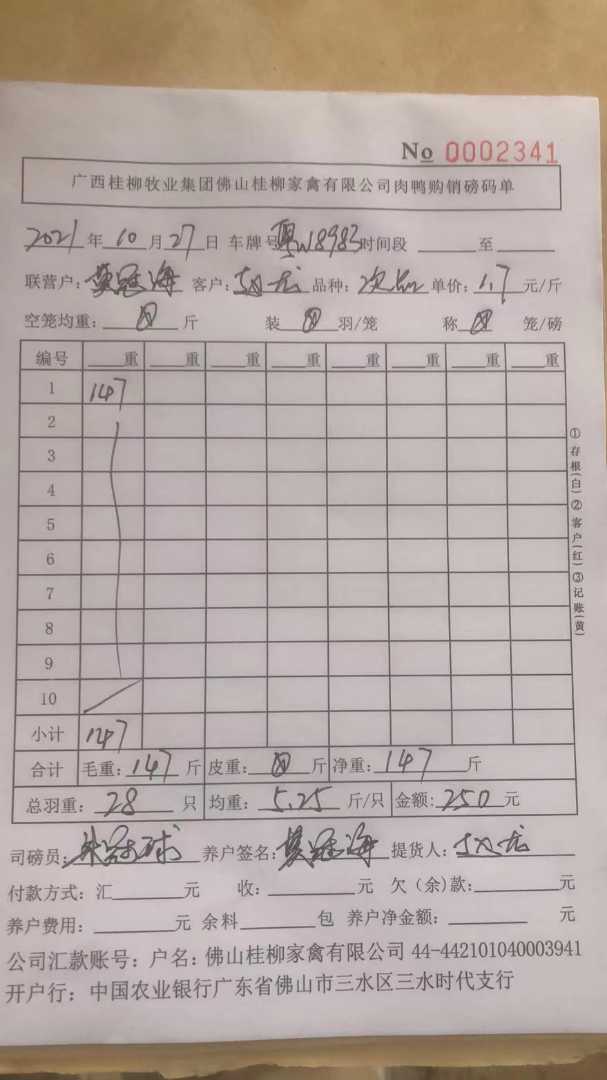 No 0002341
广西桂柳牧业集团佛山桂柳家禽有限公司肉鸭购销磅码单
2021年10月27日 车牌号粤W18983时间段 至
联营户:莫冠海 客户:赵龙 品种:次品 单价:1.7元/斤
空笼均重: 斤 装 羽/笼 称 笼/磅
编号 重 重 重 重 重 重 重 重
1 147
2
3
4
5
6
7
8
9
10
小计 147
合计 毛重:147斤 皮重: 斤 净重:147斤
总羽重:28只 均重:5.25斤/只 金额:250元
司磅员: 冠球 养户签名:莫冠海 提货人:赵龙
付款方式:汇 元 收: 元 欠(余)款: 元
养户费用: 元 余料 包 养户净金额: 元
公司汇款账号:户名:佛山桂柳家禽有限公司 44-442101040003941
开户行:中国农业银行广东省佛山市三水区三水时代支行
①存根(白)②客户(红)③记账(黄)